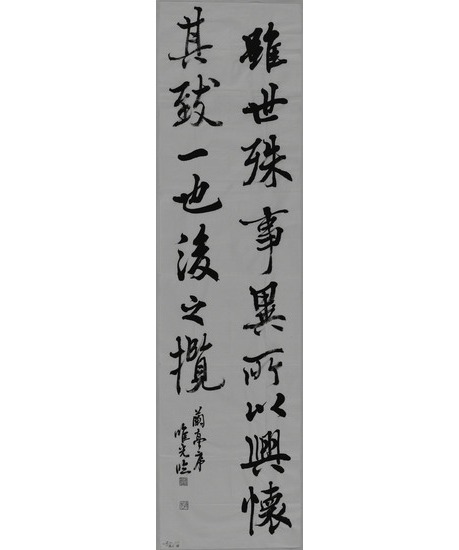 雖世殊事異所以興懷
其致一也後之攬
蘭亭序
唯光臨